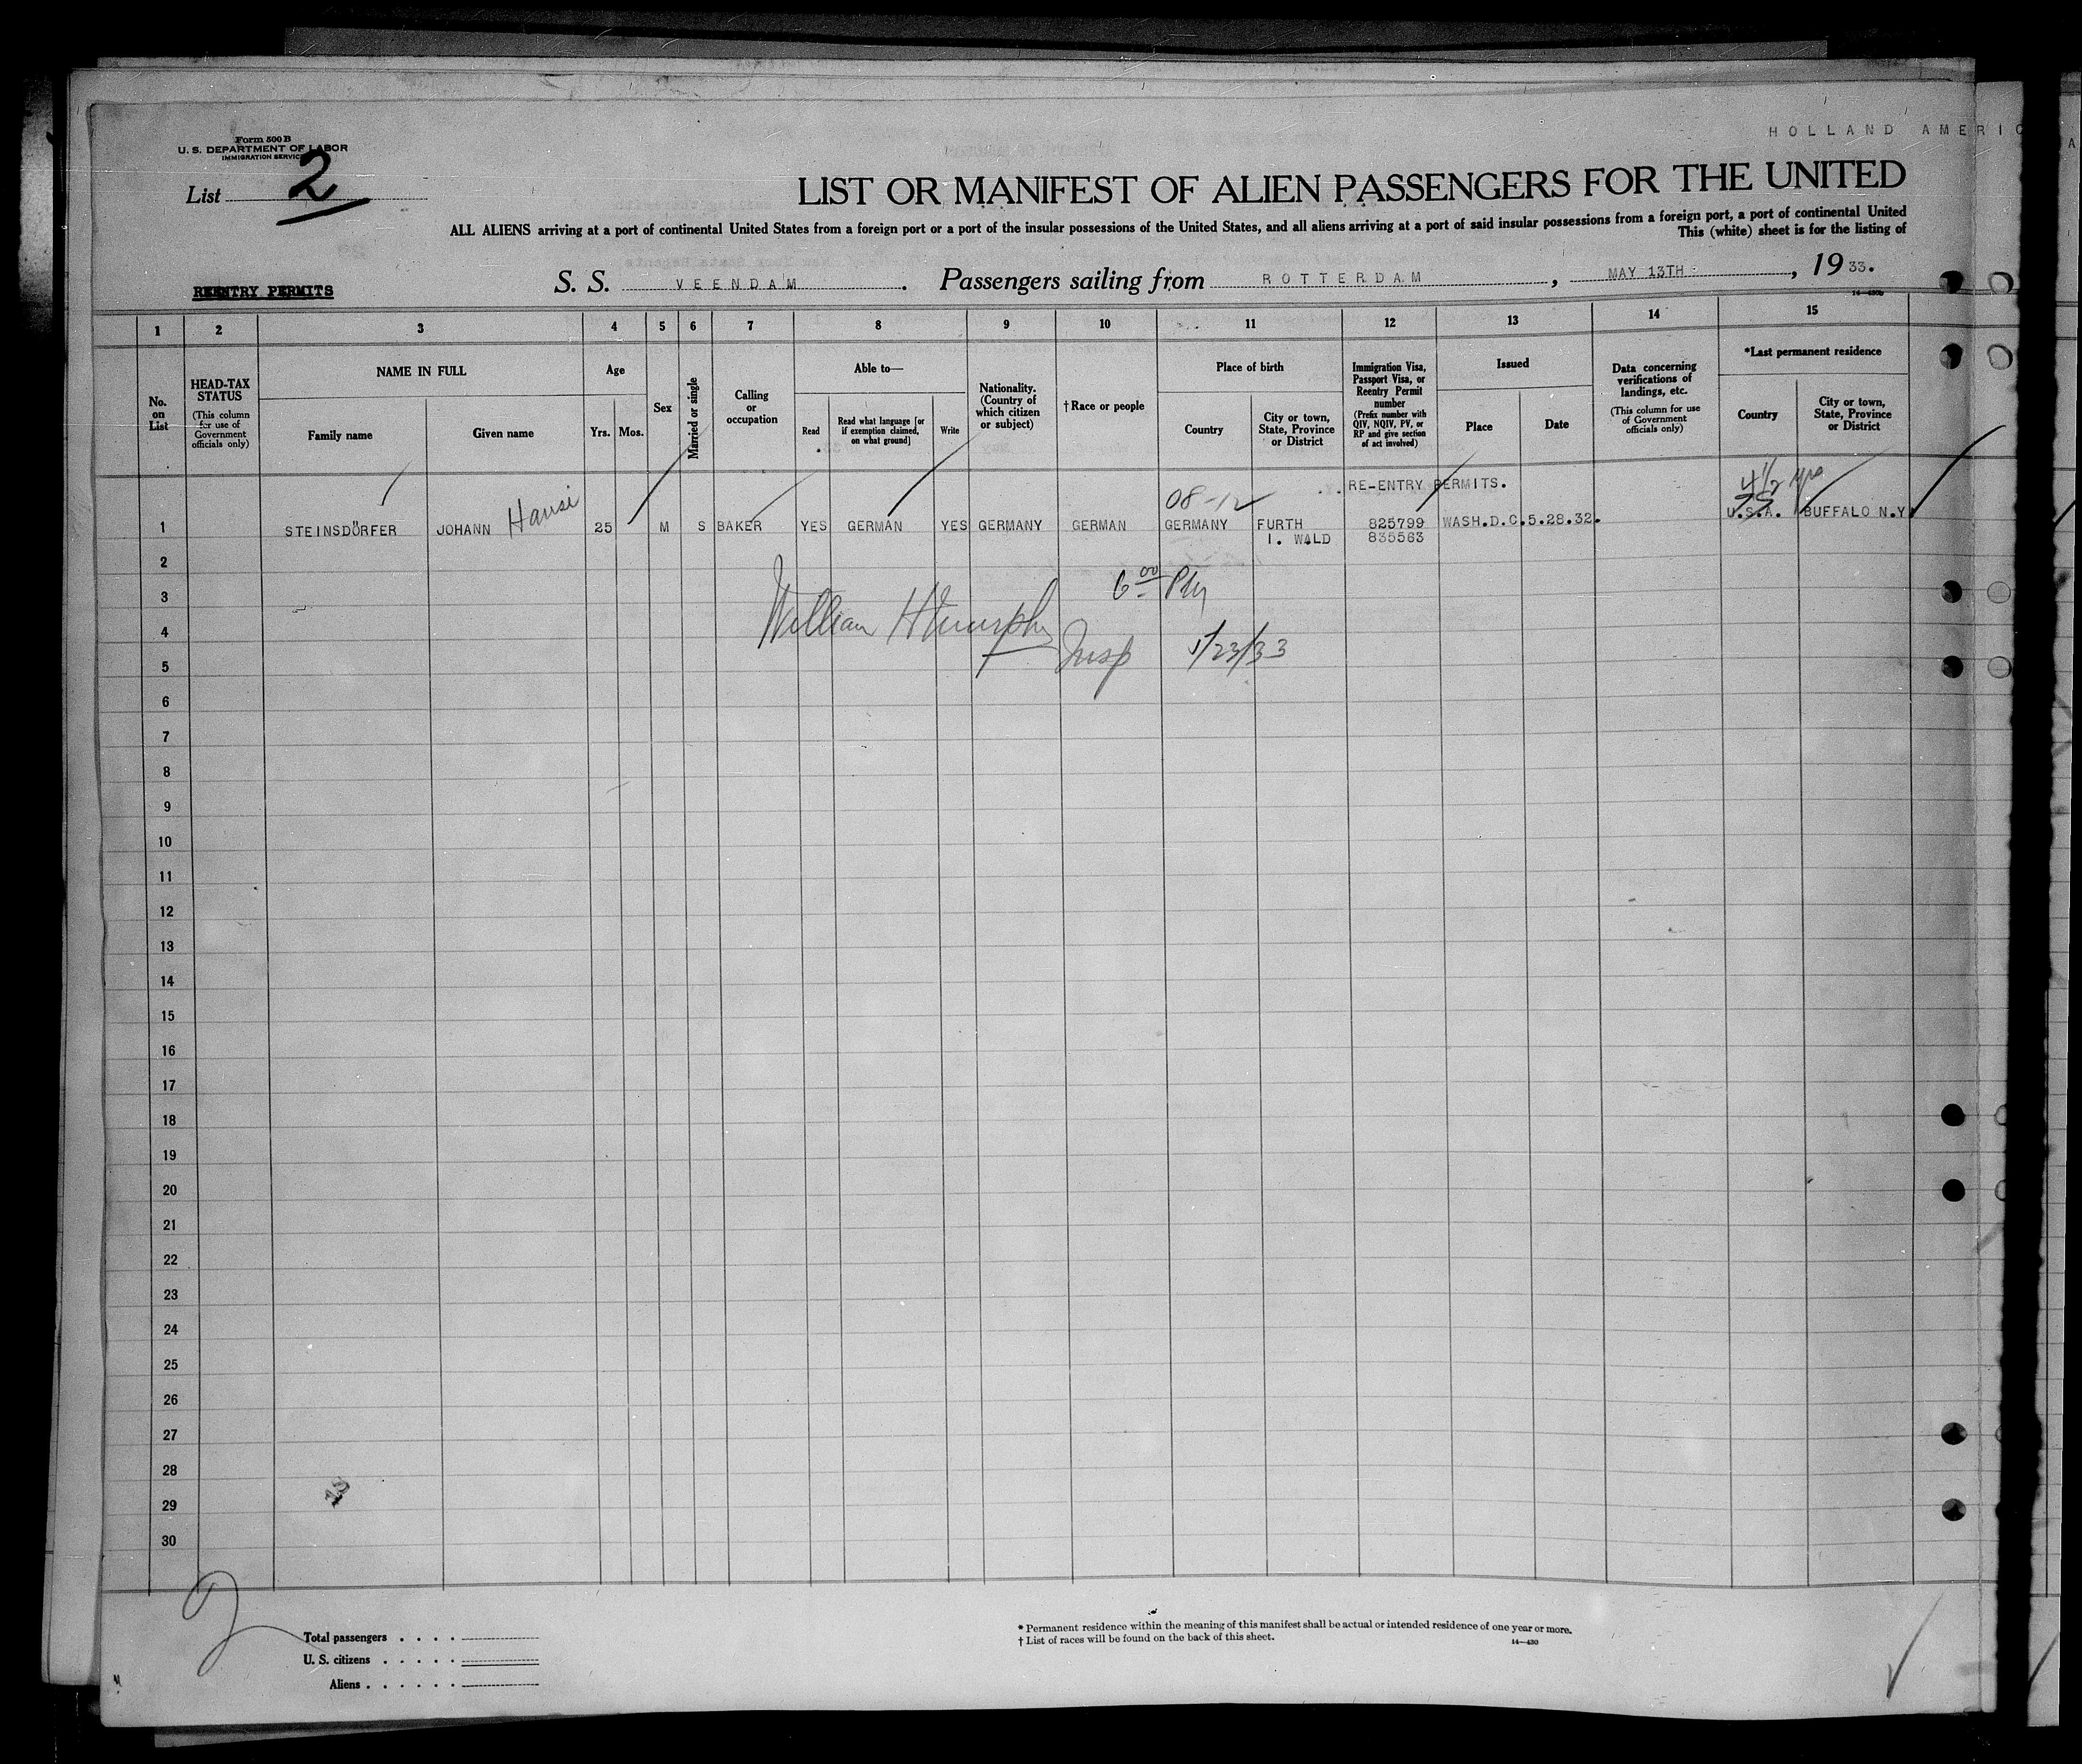 HOLLAND AMERIC
Form 500 B
U. S. DEPARTMENT OF LABOR
IMMIGRATION SERVICE
List 2
LIST OR MANIFEST OF ALIEN PASSENGERS FOR THE UNITED
ALL ALIENS arriving at a port of continental United States from a foreign port or a port of the insular possessions of the United States, and all aliens arriving at a port of said insular possessions from a foreign port, a port of continental United
This (white) sheet is for the listing of
REENTRY PERMITS
S. S. VEENDAM . Passengers sailing from ROTTERDAM , MAY 13TH , 19 33.
1 2 3 4 5 6 7 8 9 10 11 12 13 14 15
No. on List
HEAD-TAX STATUS
(This column for use of Government officials only)
NAME IN FULL
Family name
Given name
Age
Yrs.
Mos.
Sex
Married or single
Calling or occupation
Able to—
Read
Read what language [or if exemption claimed, on what ground]
Write
Nationality. (Country of which citizen or subject)
†Race or people
Place of birth
Country
City or town, State, Province or District
Immigration Visa, Passport Visa, or Reentry Permit number
(Prefix number with QIV, NQIV, PV, or RP and give section of act involved)
Issued
Place
Date
Data concerning verifications of landings, etc.
(This column for use of Government officials only)
*Last permanent residence
Country
City or town, State, Province or District
RE-ENTRY PERMITS.
08-12
4 1/2 yrs
1 STEINSDÖRFER JOHANN Hansi 25 M S BAKER YES GERMAN YES GERMANY GERMAN GERMANY FURTH 825799 WASH.D.C. 5.28.32. U.S.A. BUFFALO N.Y.
I. WALD 835563
2
3
4
5
6
7
8
9
10
11
12
13
14
15
16
17
18
19
20
21
22
23
24
25
26
27
28
29
30
6 00 PM
William H Murphy
Insp
5/23/33
Total passengers . . . .
U. S. citizens . . . . .
Aliens . . . . . .
* Permanent residence within the meaning of this manifest shall be actual or intended residence of one year or more.
† List of races will be found on the back of this sheet.
14—430